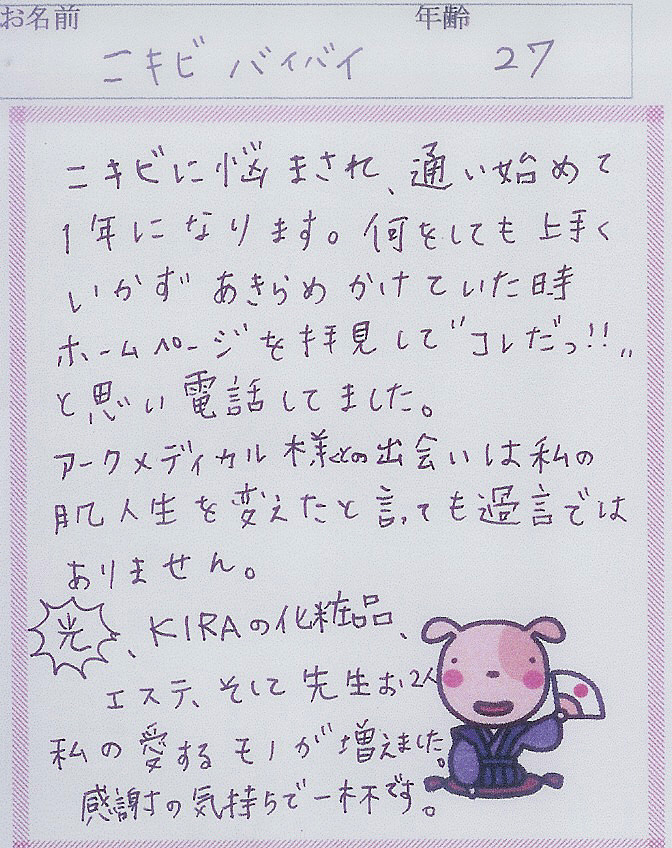 お名前 年齢
ニキビ バイバイ 27
ニキビに悩まされ、通い始めて
1年になります。何をしても上手く
いかず あきらめかけていた時
ホームページを拝見して"コレだっ!!"
と思い電話してました。
アークメディカル様との出会いは私の
肌人生を変えたと言っても過言では
ありません。
光、KIRAの化粧品、
エステ、そして先生お2人
私の愛するモノが増えました。
感謝の気持ちで一杯です。